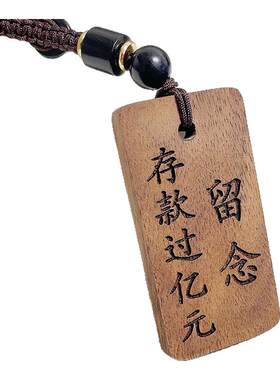 存款过亿元
留念